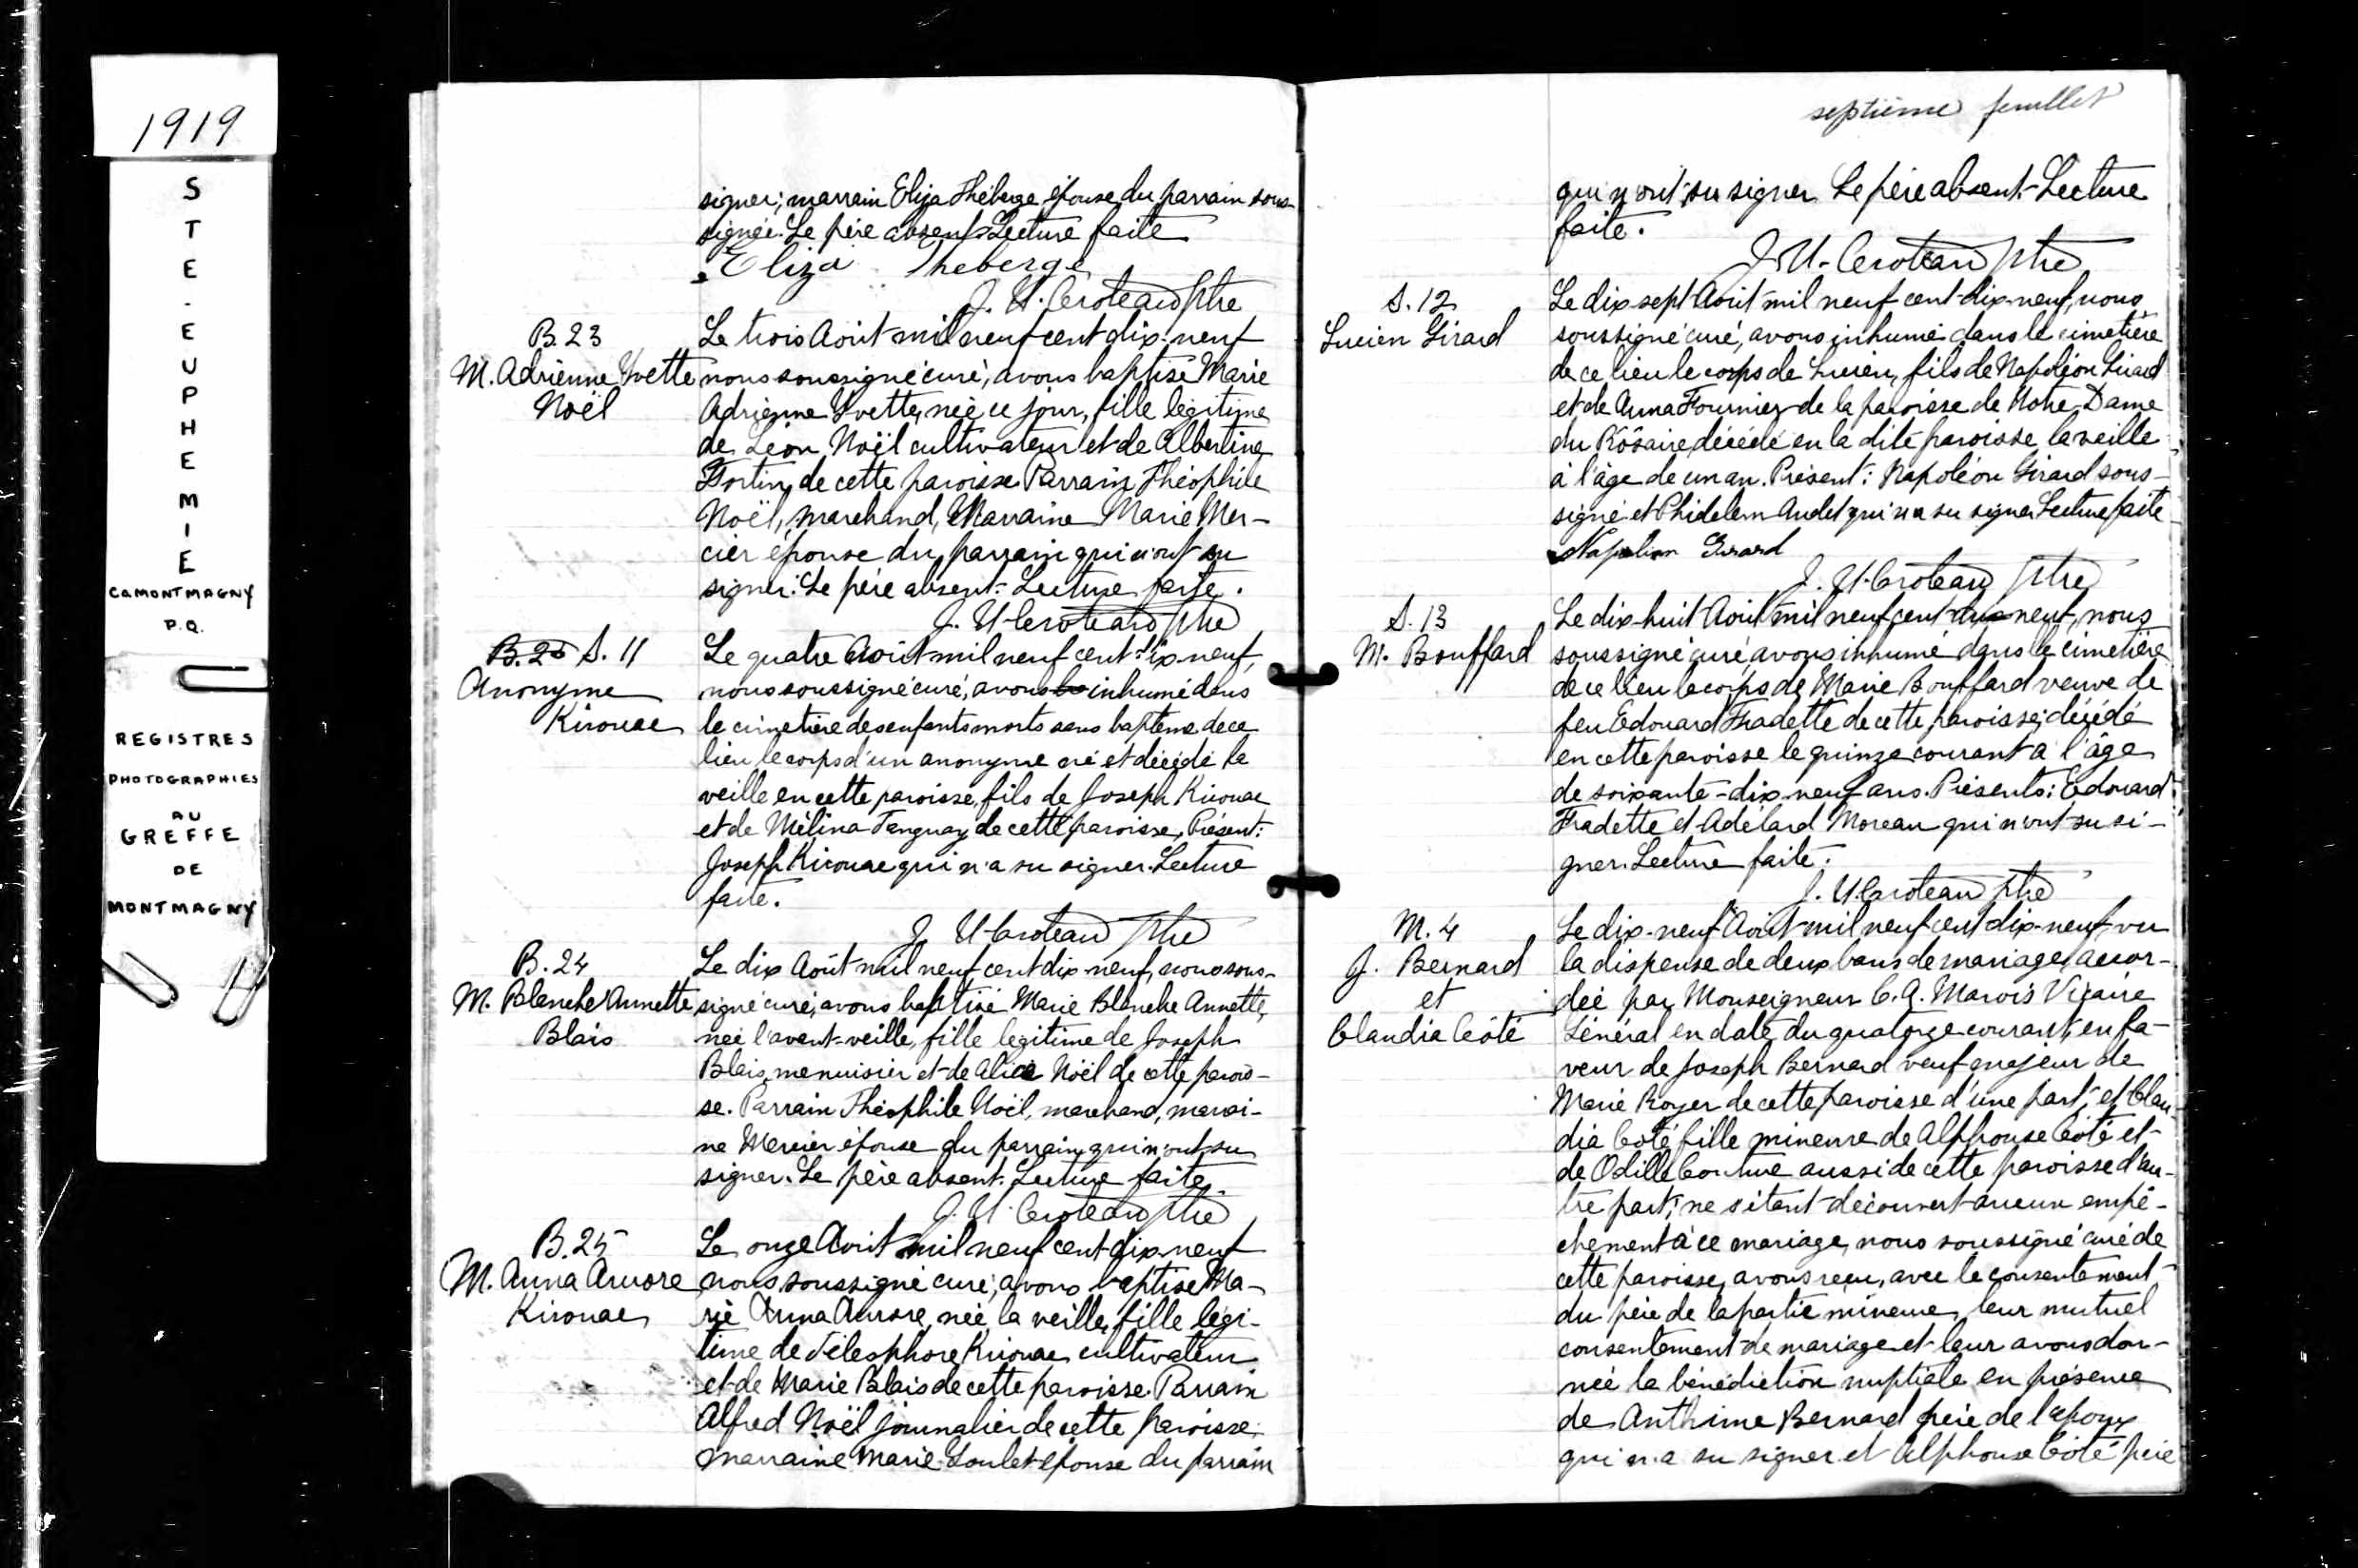 1919
STE-EUPHEMIE
Co MONTMAGNY
P.Q.
REGISTRES
PHOTOGRAPHIES
AU
GREFFE
DE
MONTMAGNY
signer; marrain Eliza Théberge épouse du parrain sous-
signée. Le père absent. Lecture faite
Eliza Theberge
J. U. Croteau Ptre
B. 23
M. Adrienne Yvette
Noël
Le trois Août mil neuf cent dix-neuf
nous soussigné curé, avons baptisé Marie
Adrienne Yvette, née ce jour, fille légitime
de Léon Noël cultivateur et de Albertine
Fortin, de cette paroisse. Parrain Théophile
Noël, marchand, Marraine Marie Mer-
cier épouse du parrain qui n'ont su
signer. Le père absent. Lecture faite.
J. U. Croteau Ptre
B. 25 S. 11
Anonyme
Kirouac
Le quatre Août mil neuf cent dix-neuf,
nous soussigné curé, avons inhumé dans
le cimetière des enfants morts sans baptême de ce
lieu le corps d'un anonyme né et décédé la
veille en cette paroisse, fils de Joseph Kirouac
et de Mélina Tanguay de cette paroisse, Présent:
Joseph Kirouac qui n'a su signer. Lecture
faite.
J. U. Croteau Ptre
B. 24
M. Blanche Annette
Blais
Le dix Août mil neuf cent dix-neuf, nous sous-
signé curé, avons baptisé Marie Blanche Annette,
née l'avant-veille, fille légitime de Joseph
Blais, menuisier et de Alice Noël de cette parois-
se. Parrain Théophile Noël, marchand, marrai-
ne Mercier épouse du parrain qui n'ont su
signer. Le père absent. Lecture faite.
J. U. Croteau Ptre
B. 25
M. Anna Aurore
Kirouac
Le onze Août mil neuf cent dix-neuf
nous soussigné curé, avons baptisé Ma-
rie Anna Aurore, née la veille, fille légi-
time de Télesphore Kirouac cultivateur
et de Marie Blais de cette paroisse. Parrain
Alfred Noël journalier de cette paroisse,
marraine Marie Goulet épouse du parrain
septième feuillet
qui n'ont su signer. Le père absent. Lecture
faite.
J. U. Croteau Ptre
S. 12
Lucien Girard
Le dix-sept Août mil neuf cent dix-neuf, nous
soussigné curé, avons inhumé dans le cimetière
de ce lieu le corps de Lucien, fils de Napoléon Girard
et de Anna Fournier de la paroisse de Notre Dame
du Rosaire, décédé en la dite paroisse la veille
à l'âge de un an. Présent: Napoléon Girard sous-
signé et Phidelem Audet qui n'a su signer. Lecture faite
Napoleon Girard
J. U. Croteau Ptre
S. 13
M. Bouffard
Le dix-huit Août mil neuf cent dix-neuf, nous
soussigné curé, avons inhumé dans le cimetière
de ce lieu le corps de Marie Bouffard veuve de
feu Edouard Fradette de cette paroisse, décédé
en cette paroisse le quinze courant à l'âge
de soixante-dix-neuf ans. Présents: Edouard
Fradette et Adélard Moreau qui n'ont su si-
gner. Lecture faite.
J. U. Croteau Ptre
M. 4
J. Bernard
et
Claudia Côté
Le dix-neuf Août mil neuf cent dix-neuf, vu
la dispense de deux bans de mariage, accor-
dée par Monseigneur C. A. Marois Vicaire
Général en date du quatorze courant, en fa-
veur de Joseph Bernard veuf majeur de
Marie Royer de cette paroisse d'une part; et Clau-
dia Côté fille mineure de Alphonse Côté et
de Odille Couture aussi de cette paroisse d'au-
tre part; ne s'étant découvert aucun empê-
chement à ce mariage, nous soussigné curé de
cette paroisse, avons reçu, avec le consentement
du père de la partie mineure, leur mutuel
consentement de mariage et leur avons don-
née la bénédiction nuptiale en présence
de Anthime Bernard père de l'époux
qui n'a su signer et Alphonse Côté père